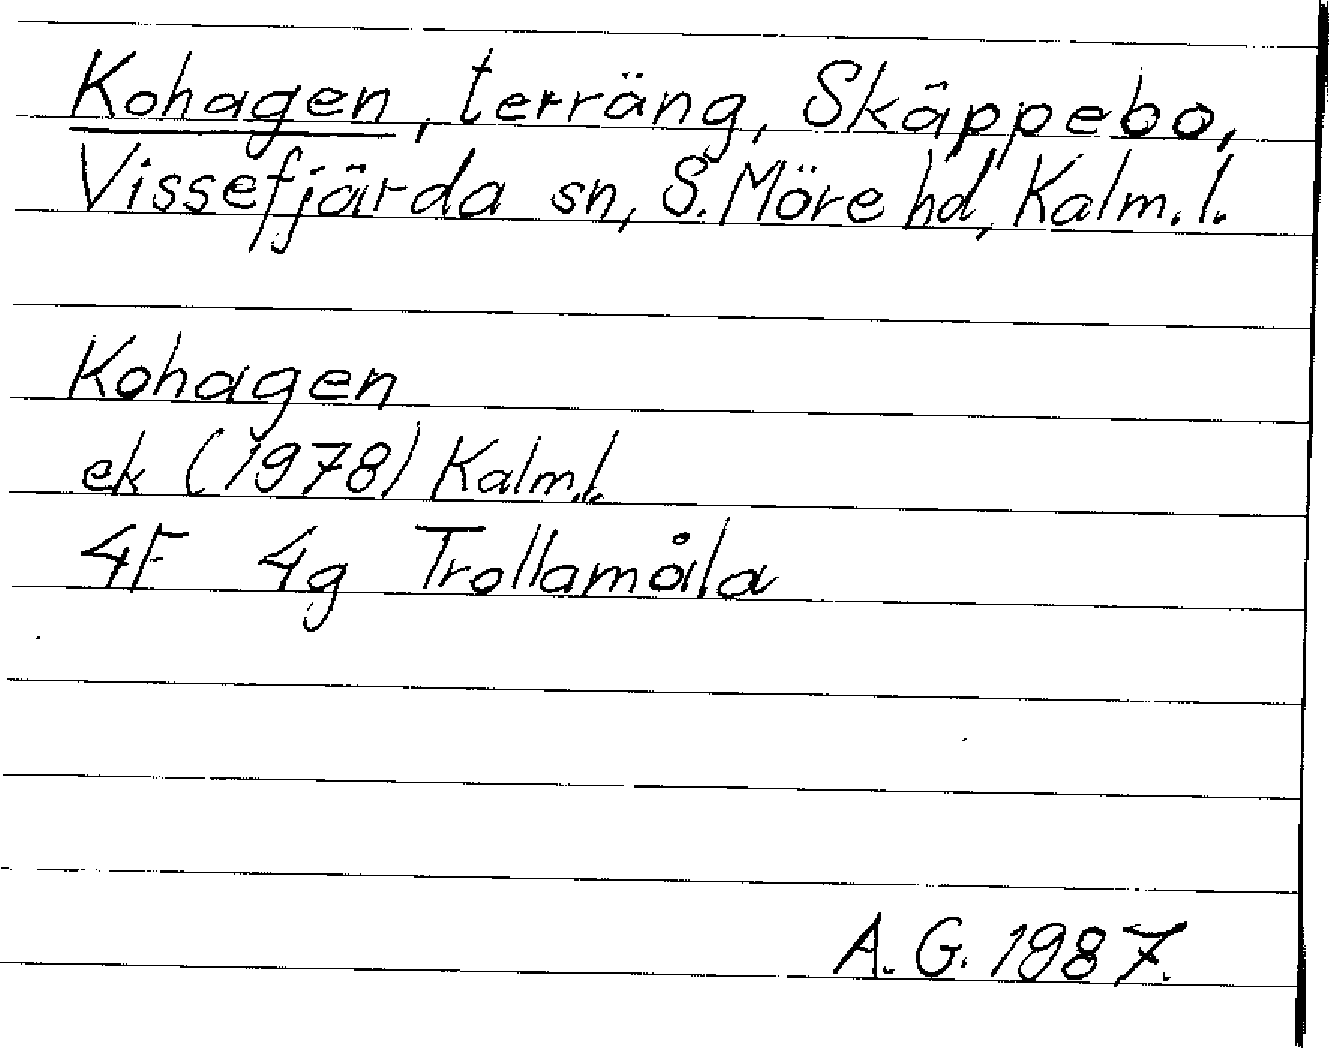 Kohagen, terräng, Skäppebo,
Vissefjärda sn, S. Möre hd, Kalm. l.
Kohagen
ek (1978) Kalm. l.
4F 4g Trollamåla
A. G. 1987.